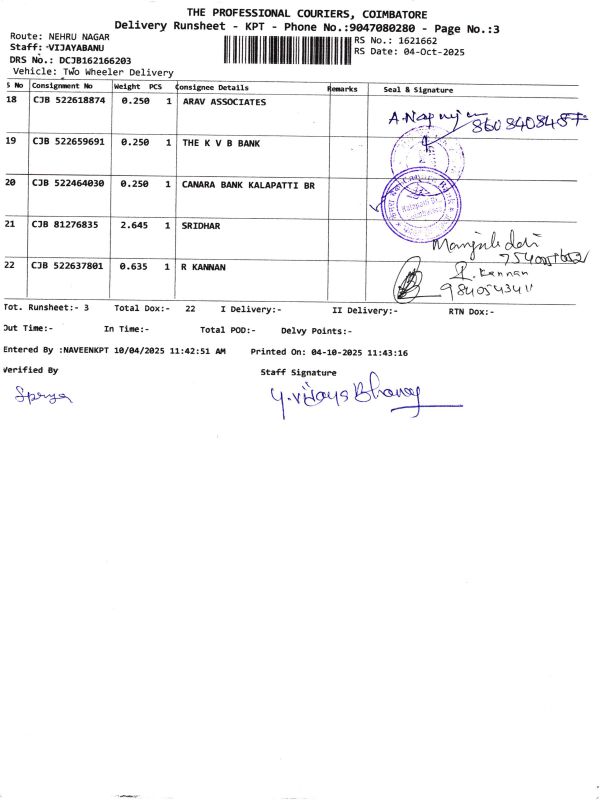 THE PROFESSIONAL COURIERS, COIMBATORE
Delivery Runsheet - KPT - Phone No.:9047080280 - Page No.:3
Route: NEHRU NAGAR
RS No.: 1621662
Staff: VIJAYABANU
RS Date: 04-Oct-2025
DRS No.: DCJB162166203
Vehicle: Two Wheeler Delivery
S No Consignment No Weight PCS Consignee Details Remarks Seal & Signature
18 CJB 522618874 0.250 1 ARAV ASSOCIATES
19 CJB 522659691 0.250 1 THE K V B BANK
20 CJB 522464030 0.250 1 CANARA BANK KALAPATTI BR
Kalapatti Br
21 CJB 81276835 2.645 1 SRIDHAR
22 CJB 522637801 0.635 1 R KANNAN
R. Kannan
9840543411
Tot. Runsheet:- 3 Total Dox:- 22 I Delivery:- II Delivery:- RTN Dox:-
Out Time:- In Time:- Total POD:- Delvy Points:-
Entered By :NAVEENKPT 10/04/2025 11:42:51 AM Printed On: 04-10-2025 11:43:16
Verified By Staff Signature